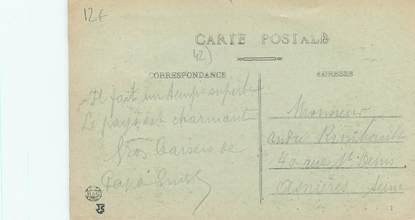 12€
CARTE POSTALE
42)
CORRESPONDANCE
ADRESSES
Il fait un temps superbe
Le pays est charmant
Gros baisers de
Papa
Monsieur
André
40 rue St Denis
Asnières Seine